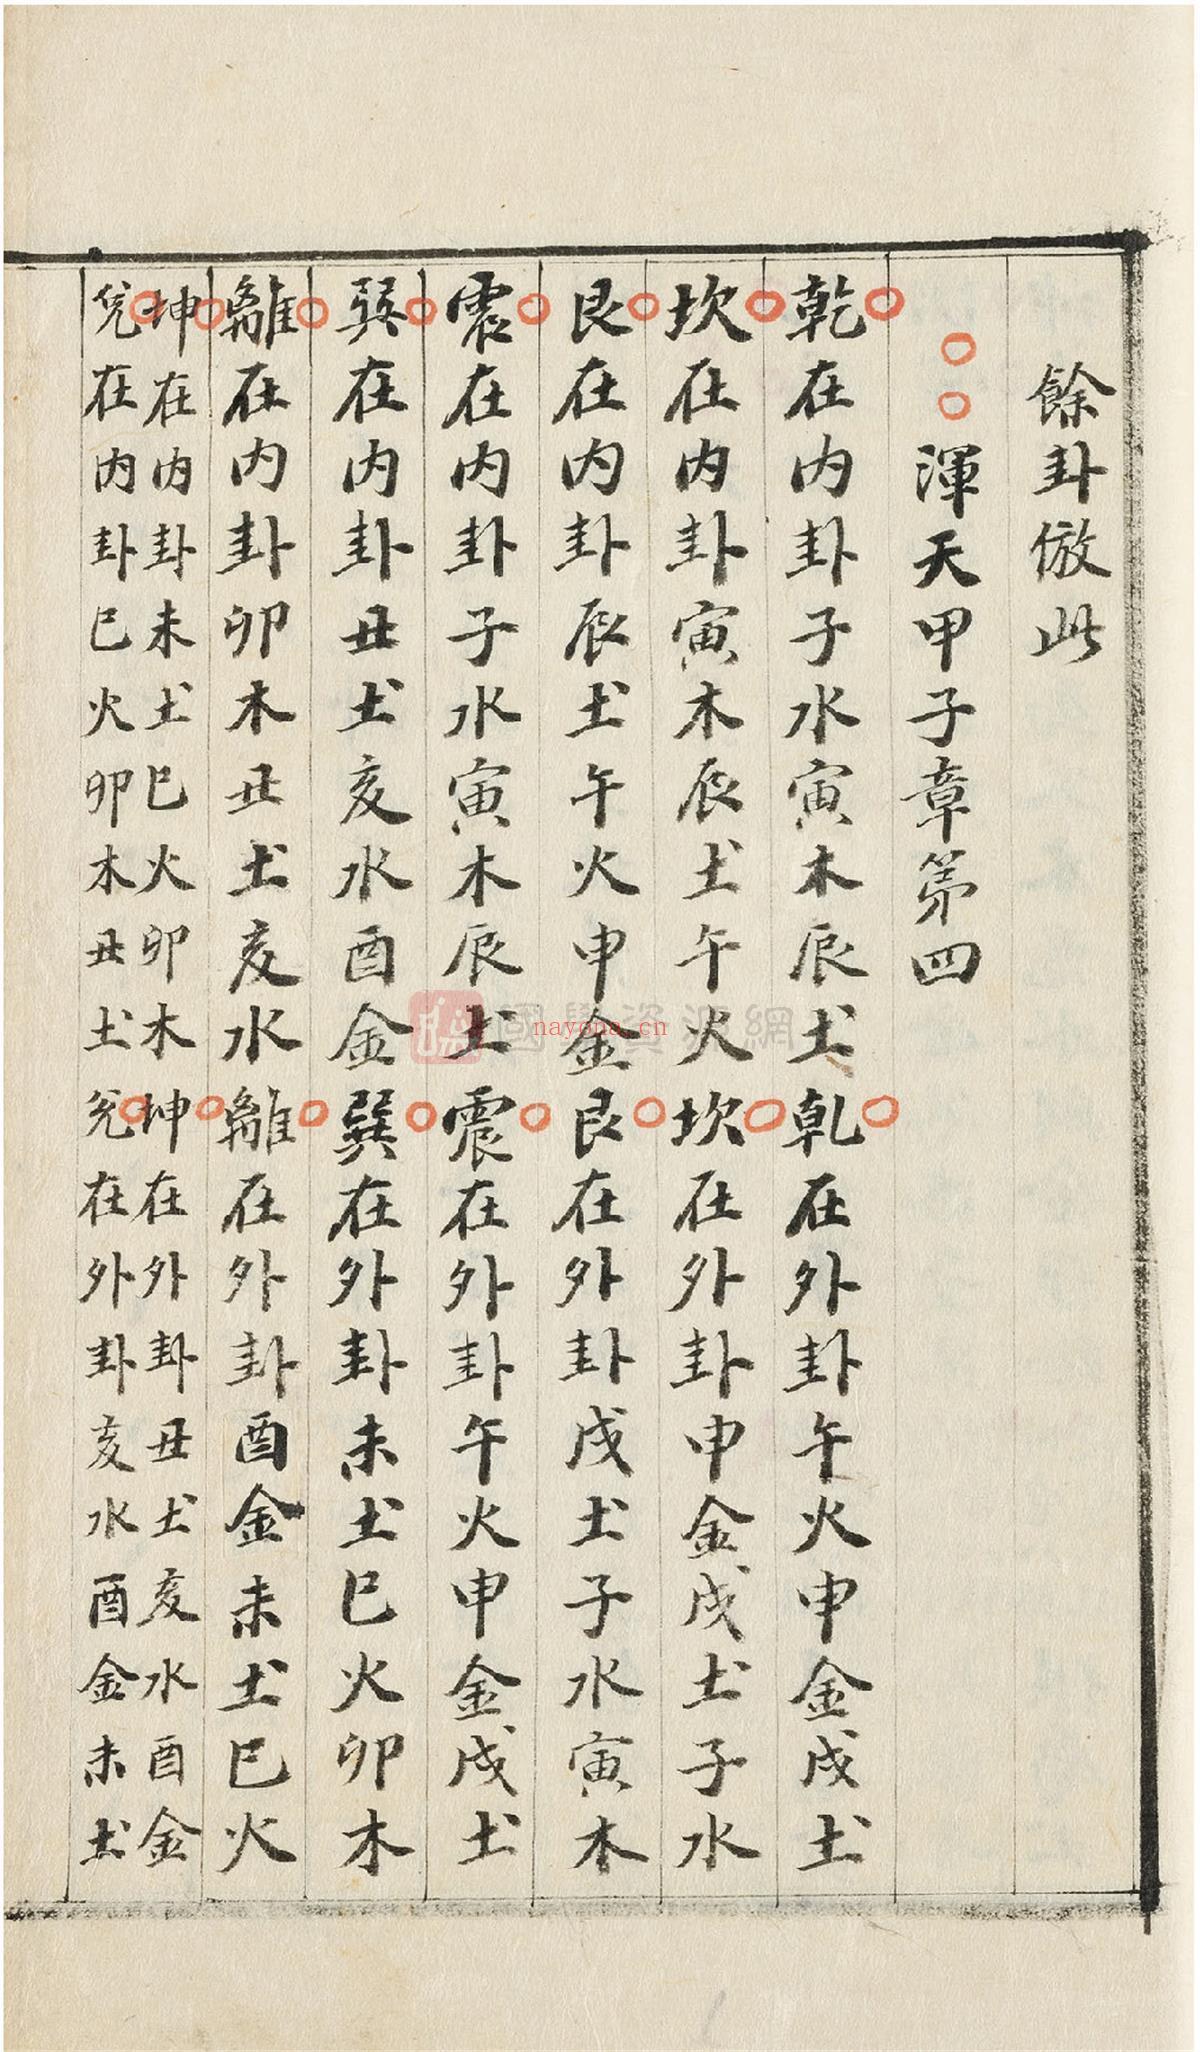 餘卦倣此
渾天甲子章第四
乾在内卦子水寅木辰土乹在外卦午火申金戌土
坎在内卦寅木辰土午火坎在外卦申金戌土子水
艮在内卦辰土午火申金艮在外卦戌土子水寅木
震在内卦子水寅木辰土震在外卦午火申金戌土
巽在内卦丑土亥水酉金巽在外卦未土巳火卯木
離在内卦卯木丑土亥水離在外卦酉金未土巳火
坤在内卦未土巳火卯木坤在外卦丑土亥水酉金
兌在内卦巳火卯木丑土兌在外卦亥水酉金未土
國學資源網
nayona.cn